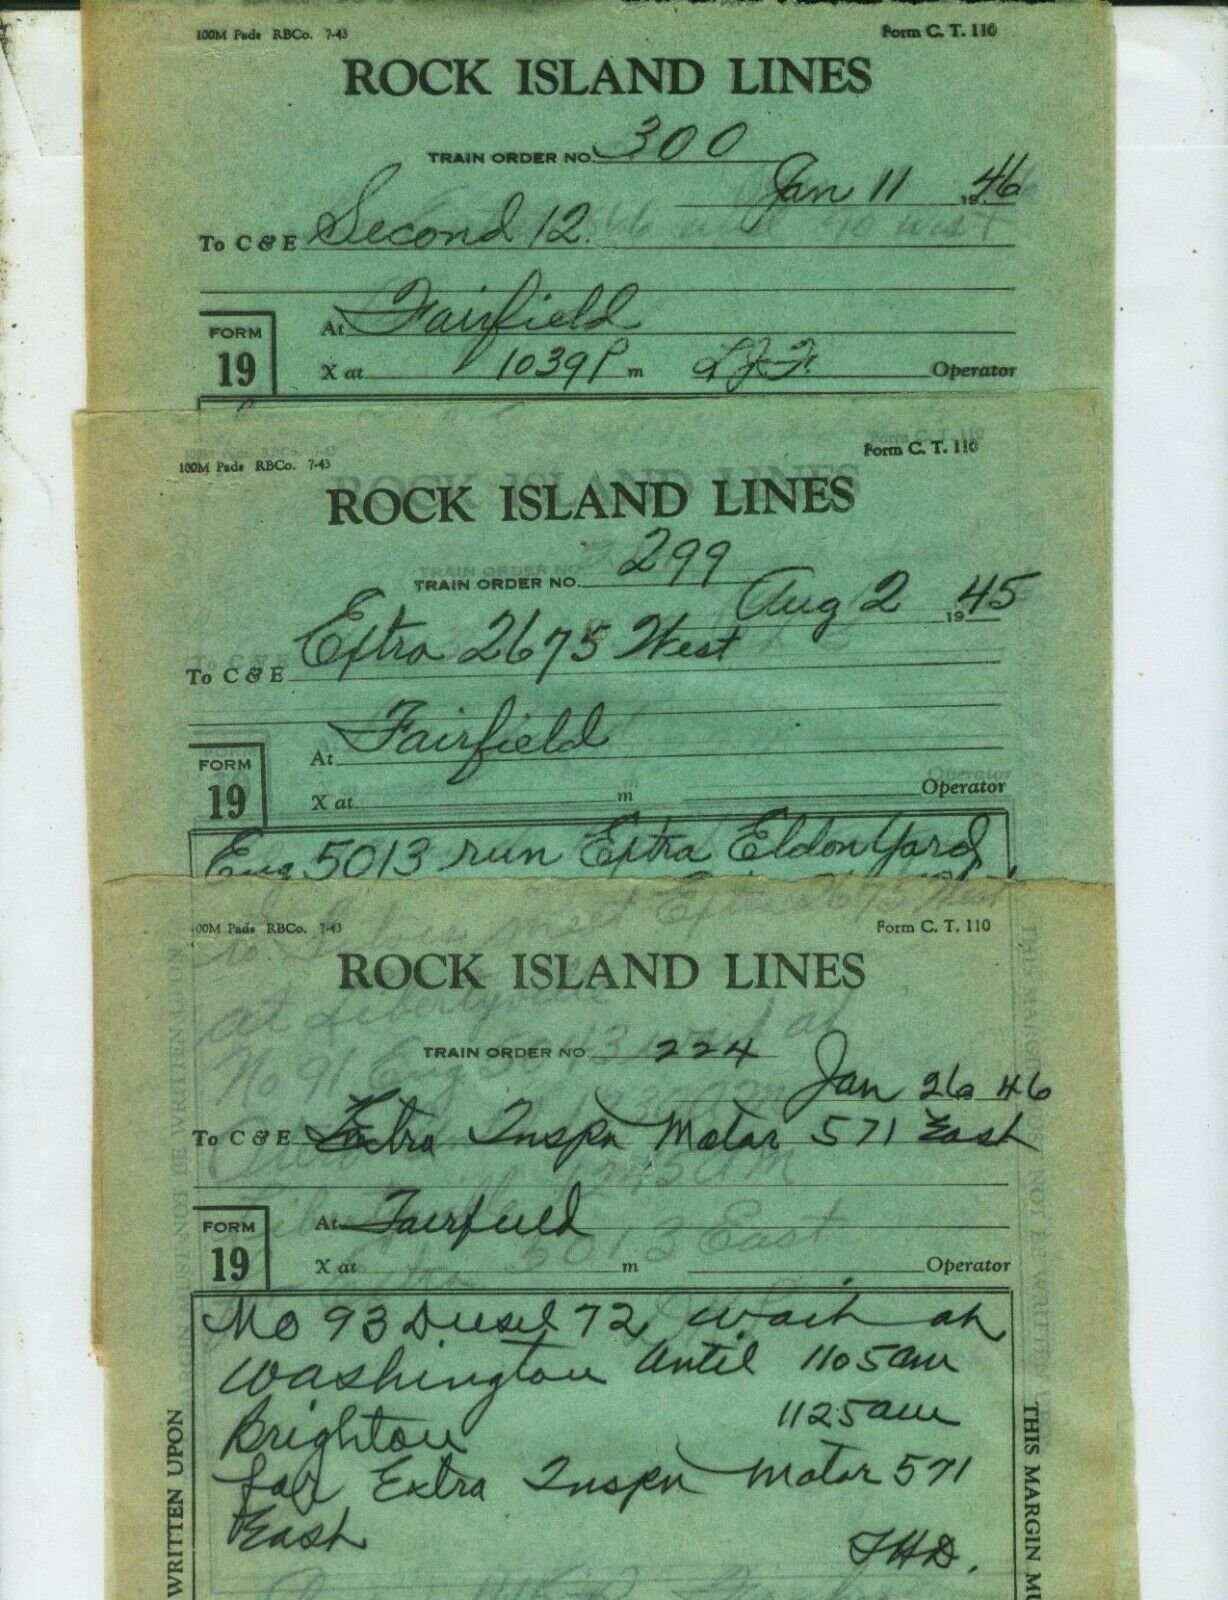 100M Pads RBCo. 7-43
Form C. T. 110
ROCK ISLAND LINES
TRAIN ORDER NO. 300
Jan 11 1946
To C & E Second 12
At Fairfield
FORM
19
X at 1039 P m Operator
100M Pads RBCo. 7-43
Form C. T. 110
ROCK ISLAND LINES
TRAIN ORDER NO. 299
Aug 2 1945
To C & E Extra 2675 West
At Fairfield
FORM
19
X at m Operator
Eng 5013 run Extra Eldon Yard
to Silvis meet Extra 2675 West
at Libertyville
No 91 Eng
1245 AM
5013 East
00M Pads RBCo. 7-43
Form C. T. 110
ROCK ISLAND LINES
TRAIN ORDER NO 224
Jan 26 46
To C & E Extra Inspn Motor 571 East
At Fairfield
FORM
19
X at m Operator
No 93 Diesel 72 wait at
Washington until 1105 am
Brighton 1125 am
for Extra Inspn Motor 571
East
THD.
WRITTEN UPON
THIS MARGIN MU